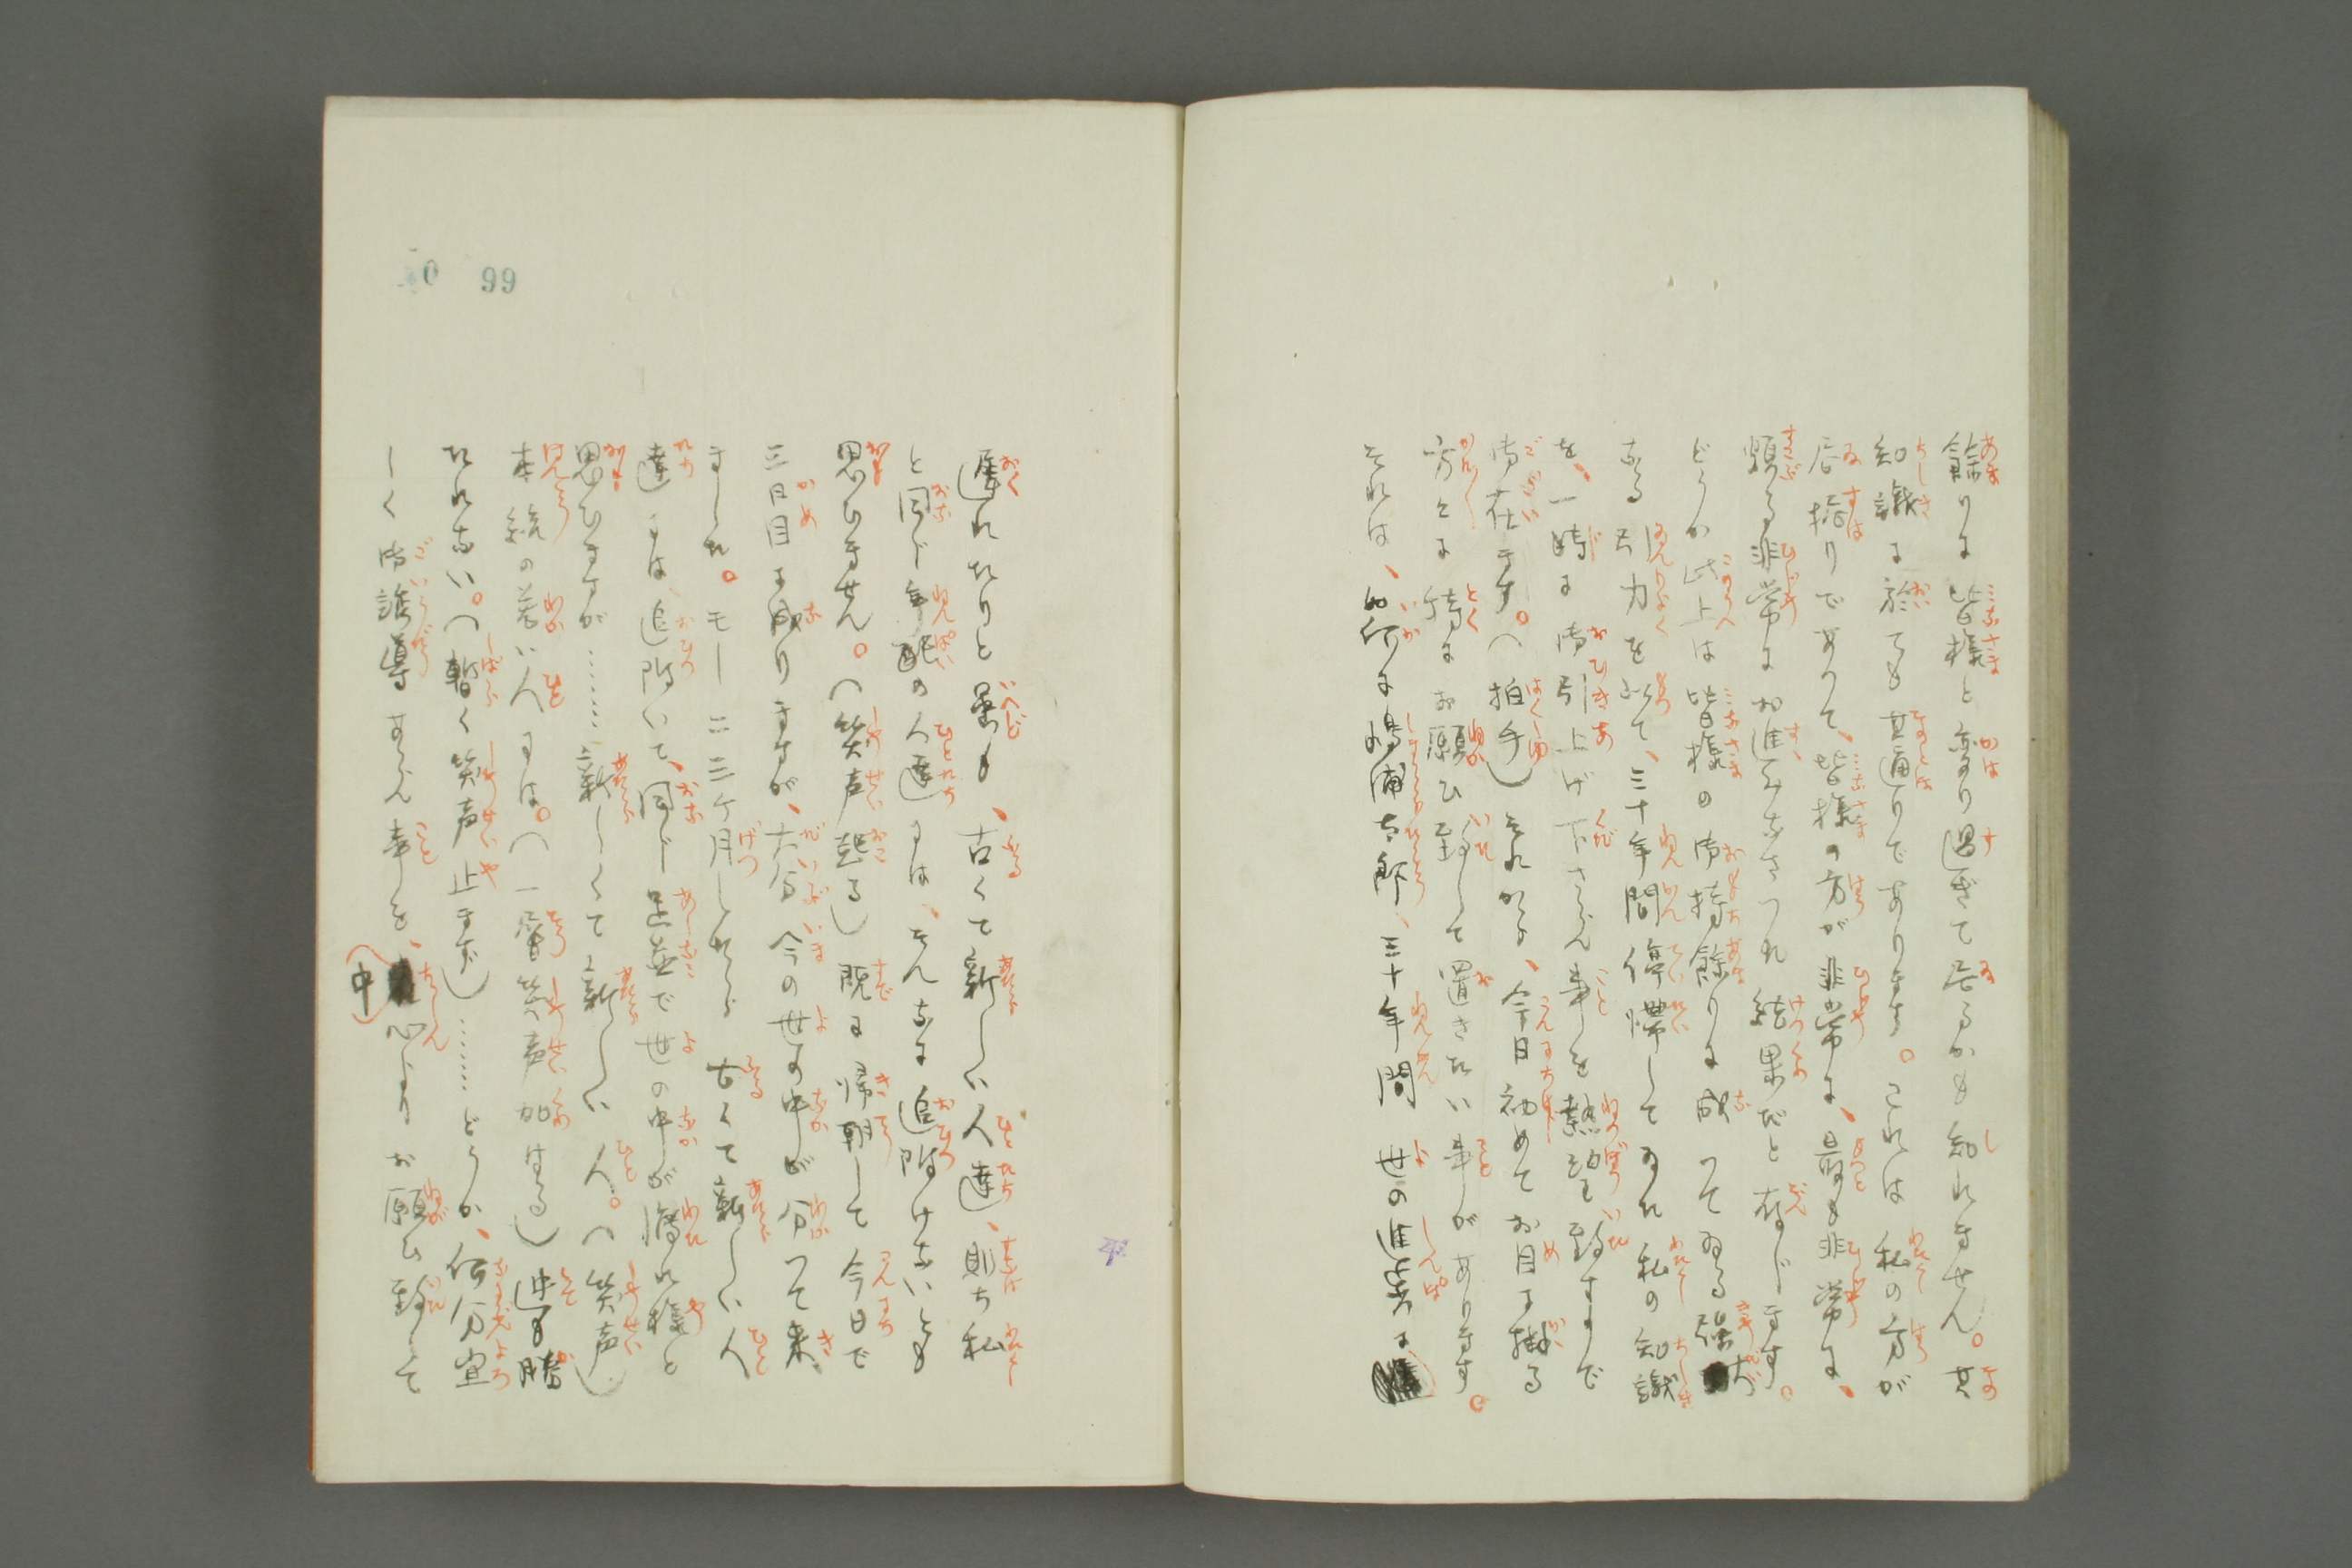 餘りに皆樣と変り過ぎて居るかも知れません。其
知識に於ても其通りであります。これは私の方が
居据りであつて、皆樣の方が非常に、最も非常に、
頗る非常にお進みなさつた結果だと存じます。
どうか此上は皆樣の御持餘りに成つてゐる强大
なる引力を以て、三十年間停滯してゐた私の知識
を、一時に御引上げ下さらん事を熱望致すまで
御在ます。(拍手)それから、今日初めてお目に掛る
方々に特にお願ひ致して置きたい事があります。
それは、如何に嶋浦太郎、三十年間世の進步に
遲れたりと雖も、古くて新しい人達、則ち私
と同じ年配の人達には、そんなに追附けないとも
思ひません。(笑声起る)既に帰朝して今日で
三日目に成りますが、大分今の世の中が分つて来
ました。モー二三ケ月したら古くて新しい人
達には、追附いて、同じ足並で世の中が渡れ樣と
思ひますが……新しくて新しい人。(笑声)
本統の若い人には。(一層笑声加はる)迚も勝
たれない。(暫く笑声止まず)……どうか、何分宜
しく御誘導あらん事を、中心よりお願ひ致して
99